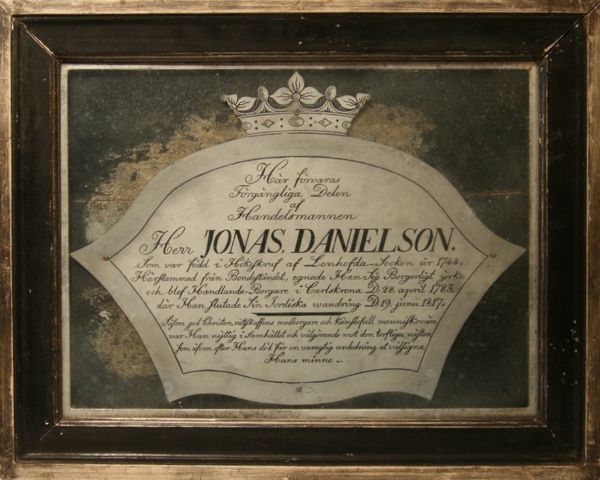 Här förvaras
Förgängliga Delen
af
Handelsmannen
Herr JONAS. DANIELSON.
Som var född i Hökskruf af Lenhofda-Socken år 1744.
Härstammad från Bondeståndet, egnade Han Sig Borgerligt yrke
och blef Handlande-Borgare i Carlskrona D. 28 april 1783.
där Han slutade Sin Jordiska wandring D. 19. junii 1817.
Såsom god Christen, rättskaffens medborgare och känslofull menniskovän
var Han nyttig i Samhället och välgörande mot den torftiga,
som äfven efter Hans död får en varagtig anledning at välsigna
Hans minne